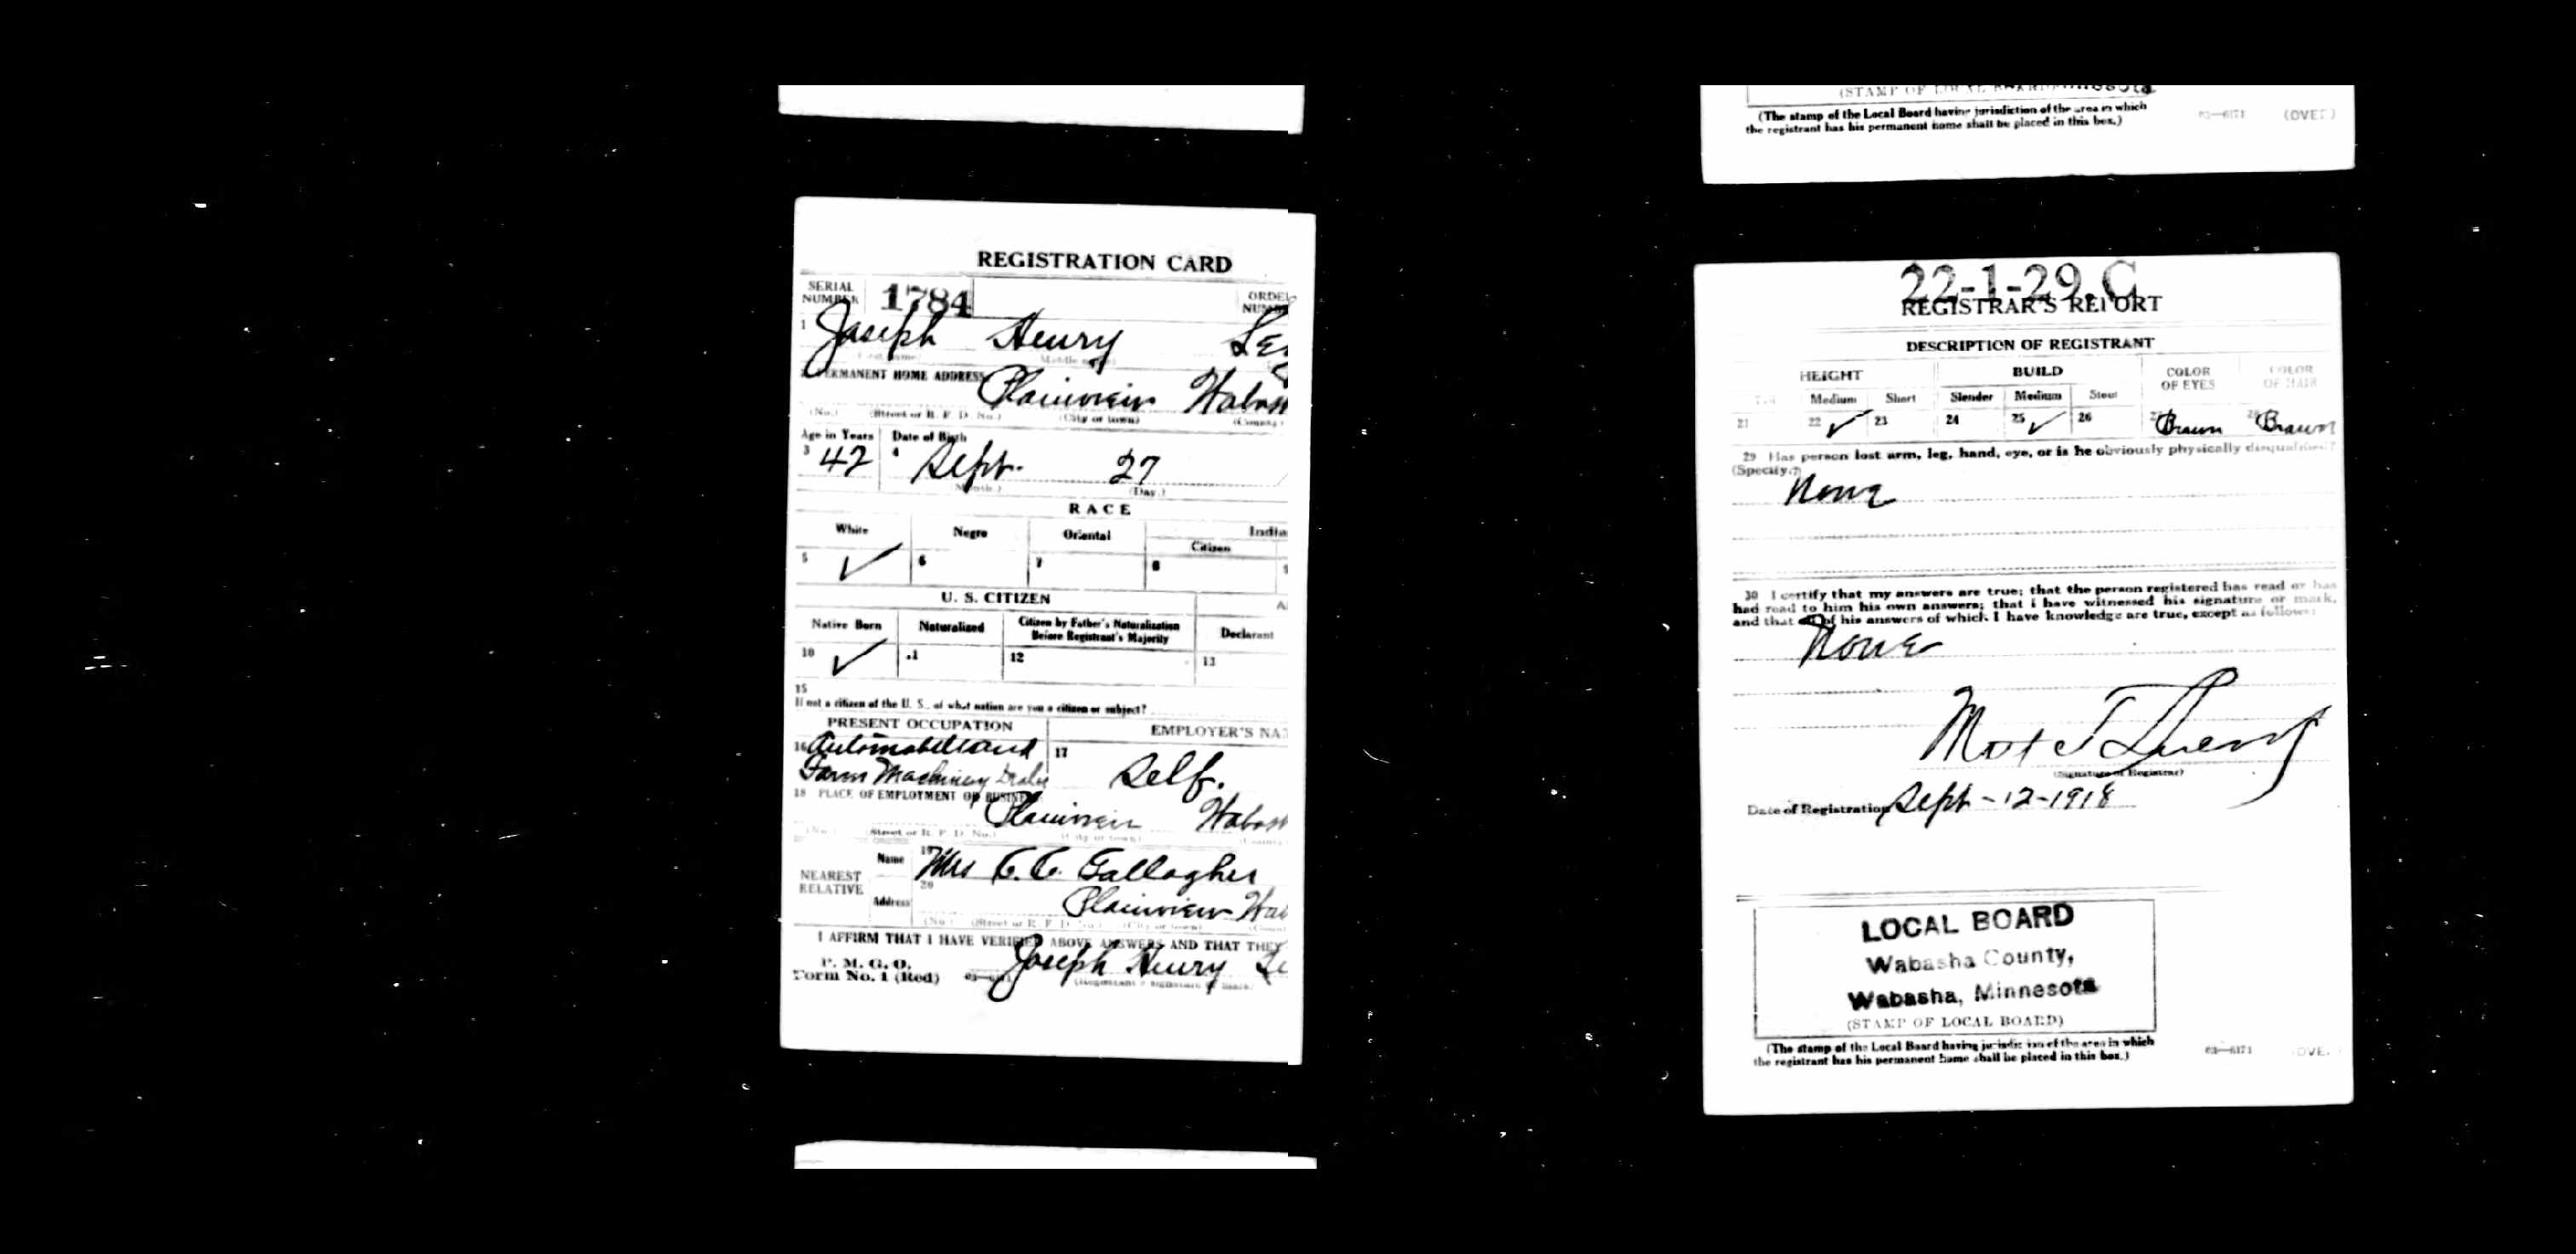 (STAMP OF LOCAL BOARD)
(The stamp of the Local Board having jurisdiction of the area in which
the registrant has his permanent home shall be placed in this box.)
03—6171 (OVER)
REGISTRATION CARD
SERIAL
NUMBER 1784 ORDE
NU
1 Joseph Henry
(First name) (Middle name)
2 PERMANENT HOME ADDRESS Plainview Wabas
(No.) (Street or R. F. D. No.) (City or town) (County)
Age in Years Date of Birth
3 42 4 Sept. 27
(Month.) (Day.)
RACE
White Negro Oriental India
Citizen
5 ✓ 6 7 8
U. S. CITIZEN A
Native Born Naturalized Citizen by Father's Naturalization
Before Registrant's Majority Declarant
10 ✓ 11 12 13
15
If not a citizen of the U. S., of what nation are you a citizen or subject?
PRESENT OCCUPATION EMPLOYER'S NA
16 Automobile and 17
Farm Machinery Dealer Self.
18 PLACE OF EMPLOYMENT OR BUSINESS
Plainview Wabas
(No.) (Street or R. F. D. No.) (City or town) (County)
NEAREST
RELATIVE
Name 19 Mrs C. C. Gallagher
20
Address Plainview Wa
(No.) (Street or R. F. D. No.) (City or town)
I AFFIRM THAT I HAVE VERIFIED ABOVE ANSWERS AND THAT THEY
P. M. G. O.
Form No. 1 (Red) Joseph Henry
(Registrant's signature or mark)
22-1-29.C
REGISTRAR'S REPORT
DESCRIPTION OF REGISTRANT
HEIGHT BUILD COLOR
OF EYES COLOR
OF HAIR
Tall Medium Short Slender Medium Stout
21 22 ✓ 23 24 25 ✓ 26 27 Brown 28 Brown
29 Has person lost arm, leg, hand, eye, or is he obviously physically disqualified?
(Specify.)
None
30 I certify that my answers are true; that the person registered has read or has
had read to him his own answers; that I have witnessed his signature or mark,
and that all of his answers of which I have knowledge are true, except as follows:
None
(Signature of Registrar)
Date of Registration Sept - 12 - 1918
LOCAL BOARD
Wabasha County,
Wabasha, Minnesota
(STAMP OF LOCAL BOARD)
(The stamp of the Local Board having jurisdiction of the area in which
the registrant has his permanent home shall be placed in this box.)
03—6171 (OVER)